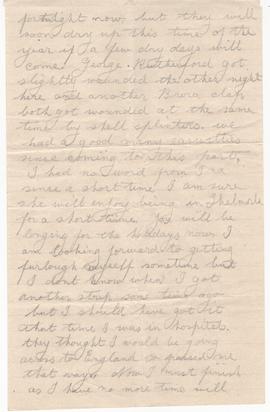 fortnight now, but they will
soon dry up this time of the
year if a few dry days will
come. George Rutherford got
slightly wounded the other night
here and another Brora chap
both got wounded at the same
time by shell splinters. we
had a good many casualties
since coming to this part,
I had no word from Ina
since a short time. I am sure
she will enjoy being in
for a short time. You will be
longing for the holidays now I
am looking forward to getting
furlough myself sometime but
I dont know when I got
another strip some time ago
but I should have got it
that time I was in hospital
they thought I would be going
across to England so passed me
that way. Now I must finish
as I have no more time will